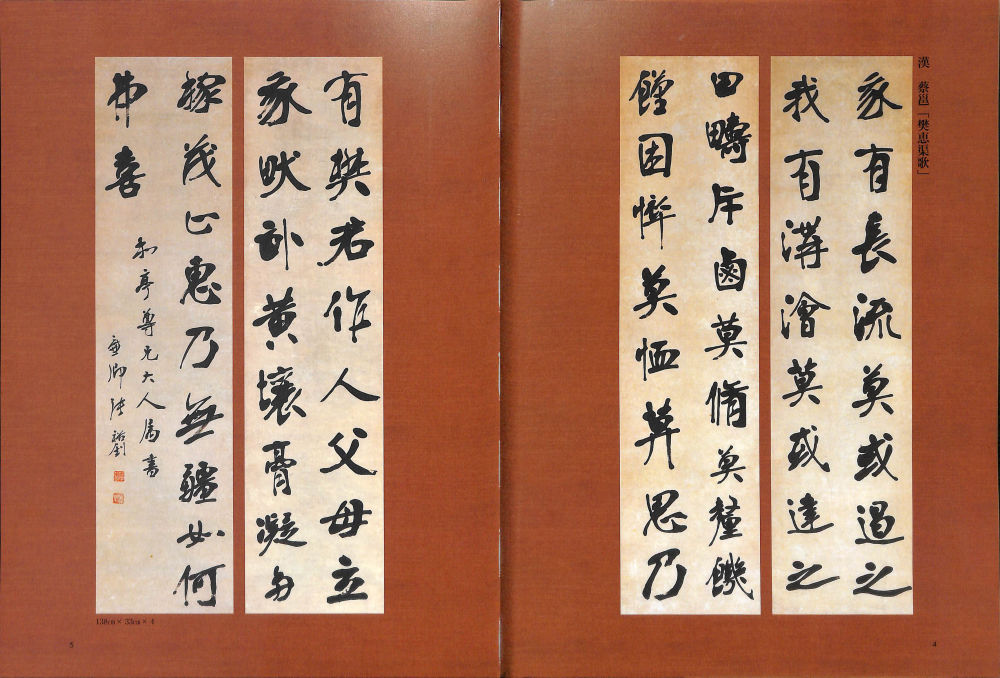 漢 蔡邕「樊惠渠歌」
我有長流莫或遏之
我有溝澮莫或達之
田疇斥鹵莫脩莫釐饑
饉困悴莫恤莫思乃
4
有樊君作人父母立
我畎畝黃壤膏凝多
稼茂止惠乃無疆如何
弗喜
和亭尊兄大人屬書
廉卿張裕釗
138cm×33cm×4
5